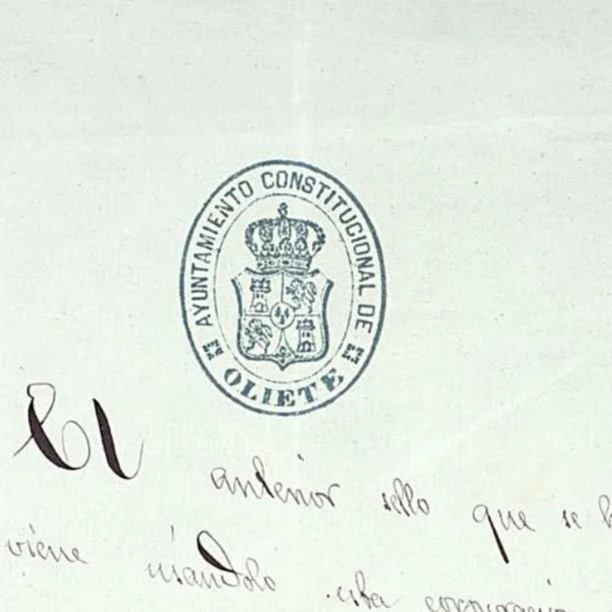 AYUNTAMIENTO CONSTITUCIONAL DE
OLIETE
El anterior sello que se
viene usandolo esta corporacion